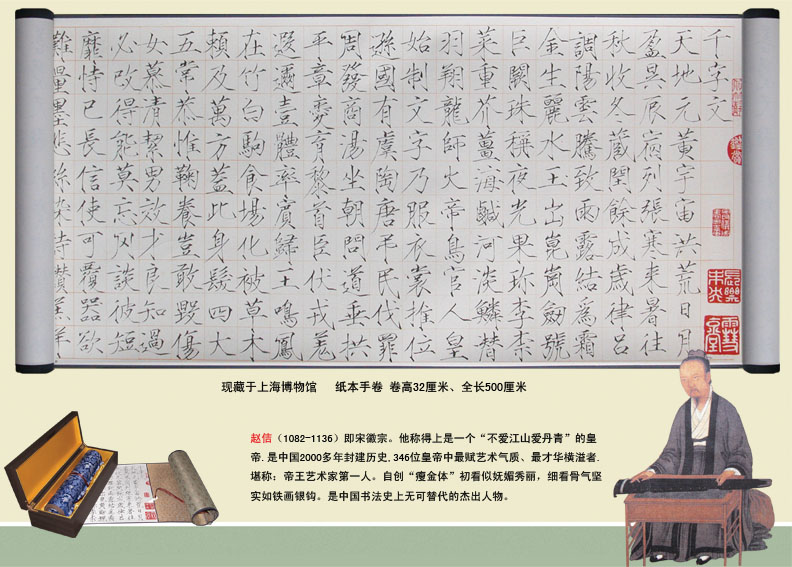 千字文
天地元黃宇宙洪荒日月
盈昃辰宿列張寒来暑往
秋收冬蔵閏餘成歲律呂
調陽雲騰致雨露結爲霜
金生麗水玉出崑崗劍號
巨闕珠稱夜光果珍李柰
菜重芥薑海鹹河淡鱗替
羽翔龍師火帝鳥官人皇
始制文字乃服衣裳推位
遜國有虞陶唐弔民伐罪
周發商湯坐朝問道垂拱
平章愛育黎首臣伏戎羌
遐邇壹體率賓歸王鳴鳳
在竹白駒食場化被草木
賴及萬方蓋此身髮四大
五常恭惟鞠養豈敢毀傷
女慕清絜男效才良知過
必改得能莫忘罔談彼短
靡恃己長信使可覆器欲
難量墨悲絲染詩讚羔羊
现藏于上海博物馆 纸本手卷 卷高32厘米、全长500厘米
赵佶（1082-1136）即宋徽宗。他称得上是一个“不爱江山爱丹青”的皇
帝.是中国2000多年封建历史,346位皇帝中最赋艺术气质、最才华横溢者.
堪称：帝王艺术家第一人。自创“瘦金体”初看似妩媚秀丽，细看骨气坚
实如铁画银钩。是中国书法史上无可替代的杰出人物。